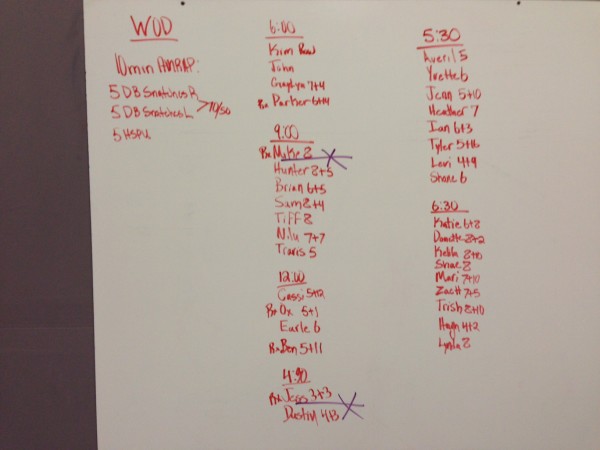 WOD
10min AMRAP:
5 DB Snatches R
5 DB Snatches L > 70/50
5 HSPU
6:00
Kim
John
7+4
Rx Parker 6+4
9:00
Rx Mike 8
Hunter 8+5
Brian 6+5
Sam 8+4
Tiff 8
Nilu 7+7
Travis 5
12:00
Cassi 5+12
Rx Ox 5+1
Earle 6
Rx Ben 5+11
4:30
Rx Jess 3+3
Dustin 4+3
5:30
Averil 5
Yvette 6
Jenn 5+10
Heather 7
Ian 6+3
Tyler 5+16
Levi 4+4
Shane 6
6:30
Katie 6+8
Danette 8+2
Kellda
Shae 8
Mari 7+10
Zach 7+5
Trish 8+10
4+2
Lynla 8